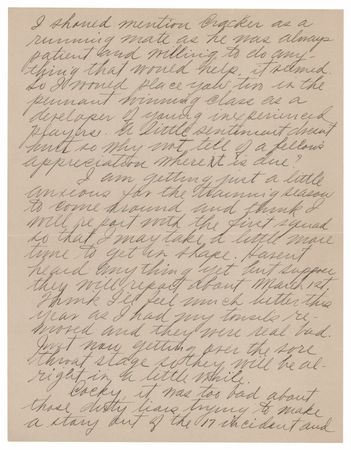 I should mention Cracker as a
running mate as he was always
patient and willing to do any-
thing that would help, it seemed.
So I would place you two in the
pennant winning class as a
developer of young inexperienced
players. A little sentiment dont
hurt so why not tell of a fellows
appreciation where it is due?
I am getting just a little
anxious for the training season
to come around and think I
will report with the first squad
so that I may take a little more
time to get in shape. Havent
heard anything yet but suppose
they will report about March 1st.
Think I'll feel much better this
year as I had my tonsils re-
moved and they were real bad.
Just now getting over the sore
throat stage so they will be al-
right in a little while.
Cocky it was too bad about
those dirty liars trying to make
a story out of the 17 incident and